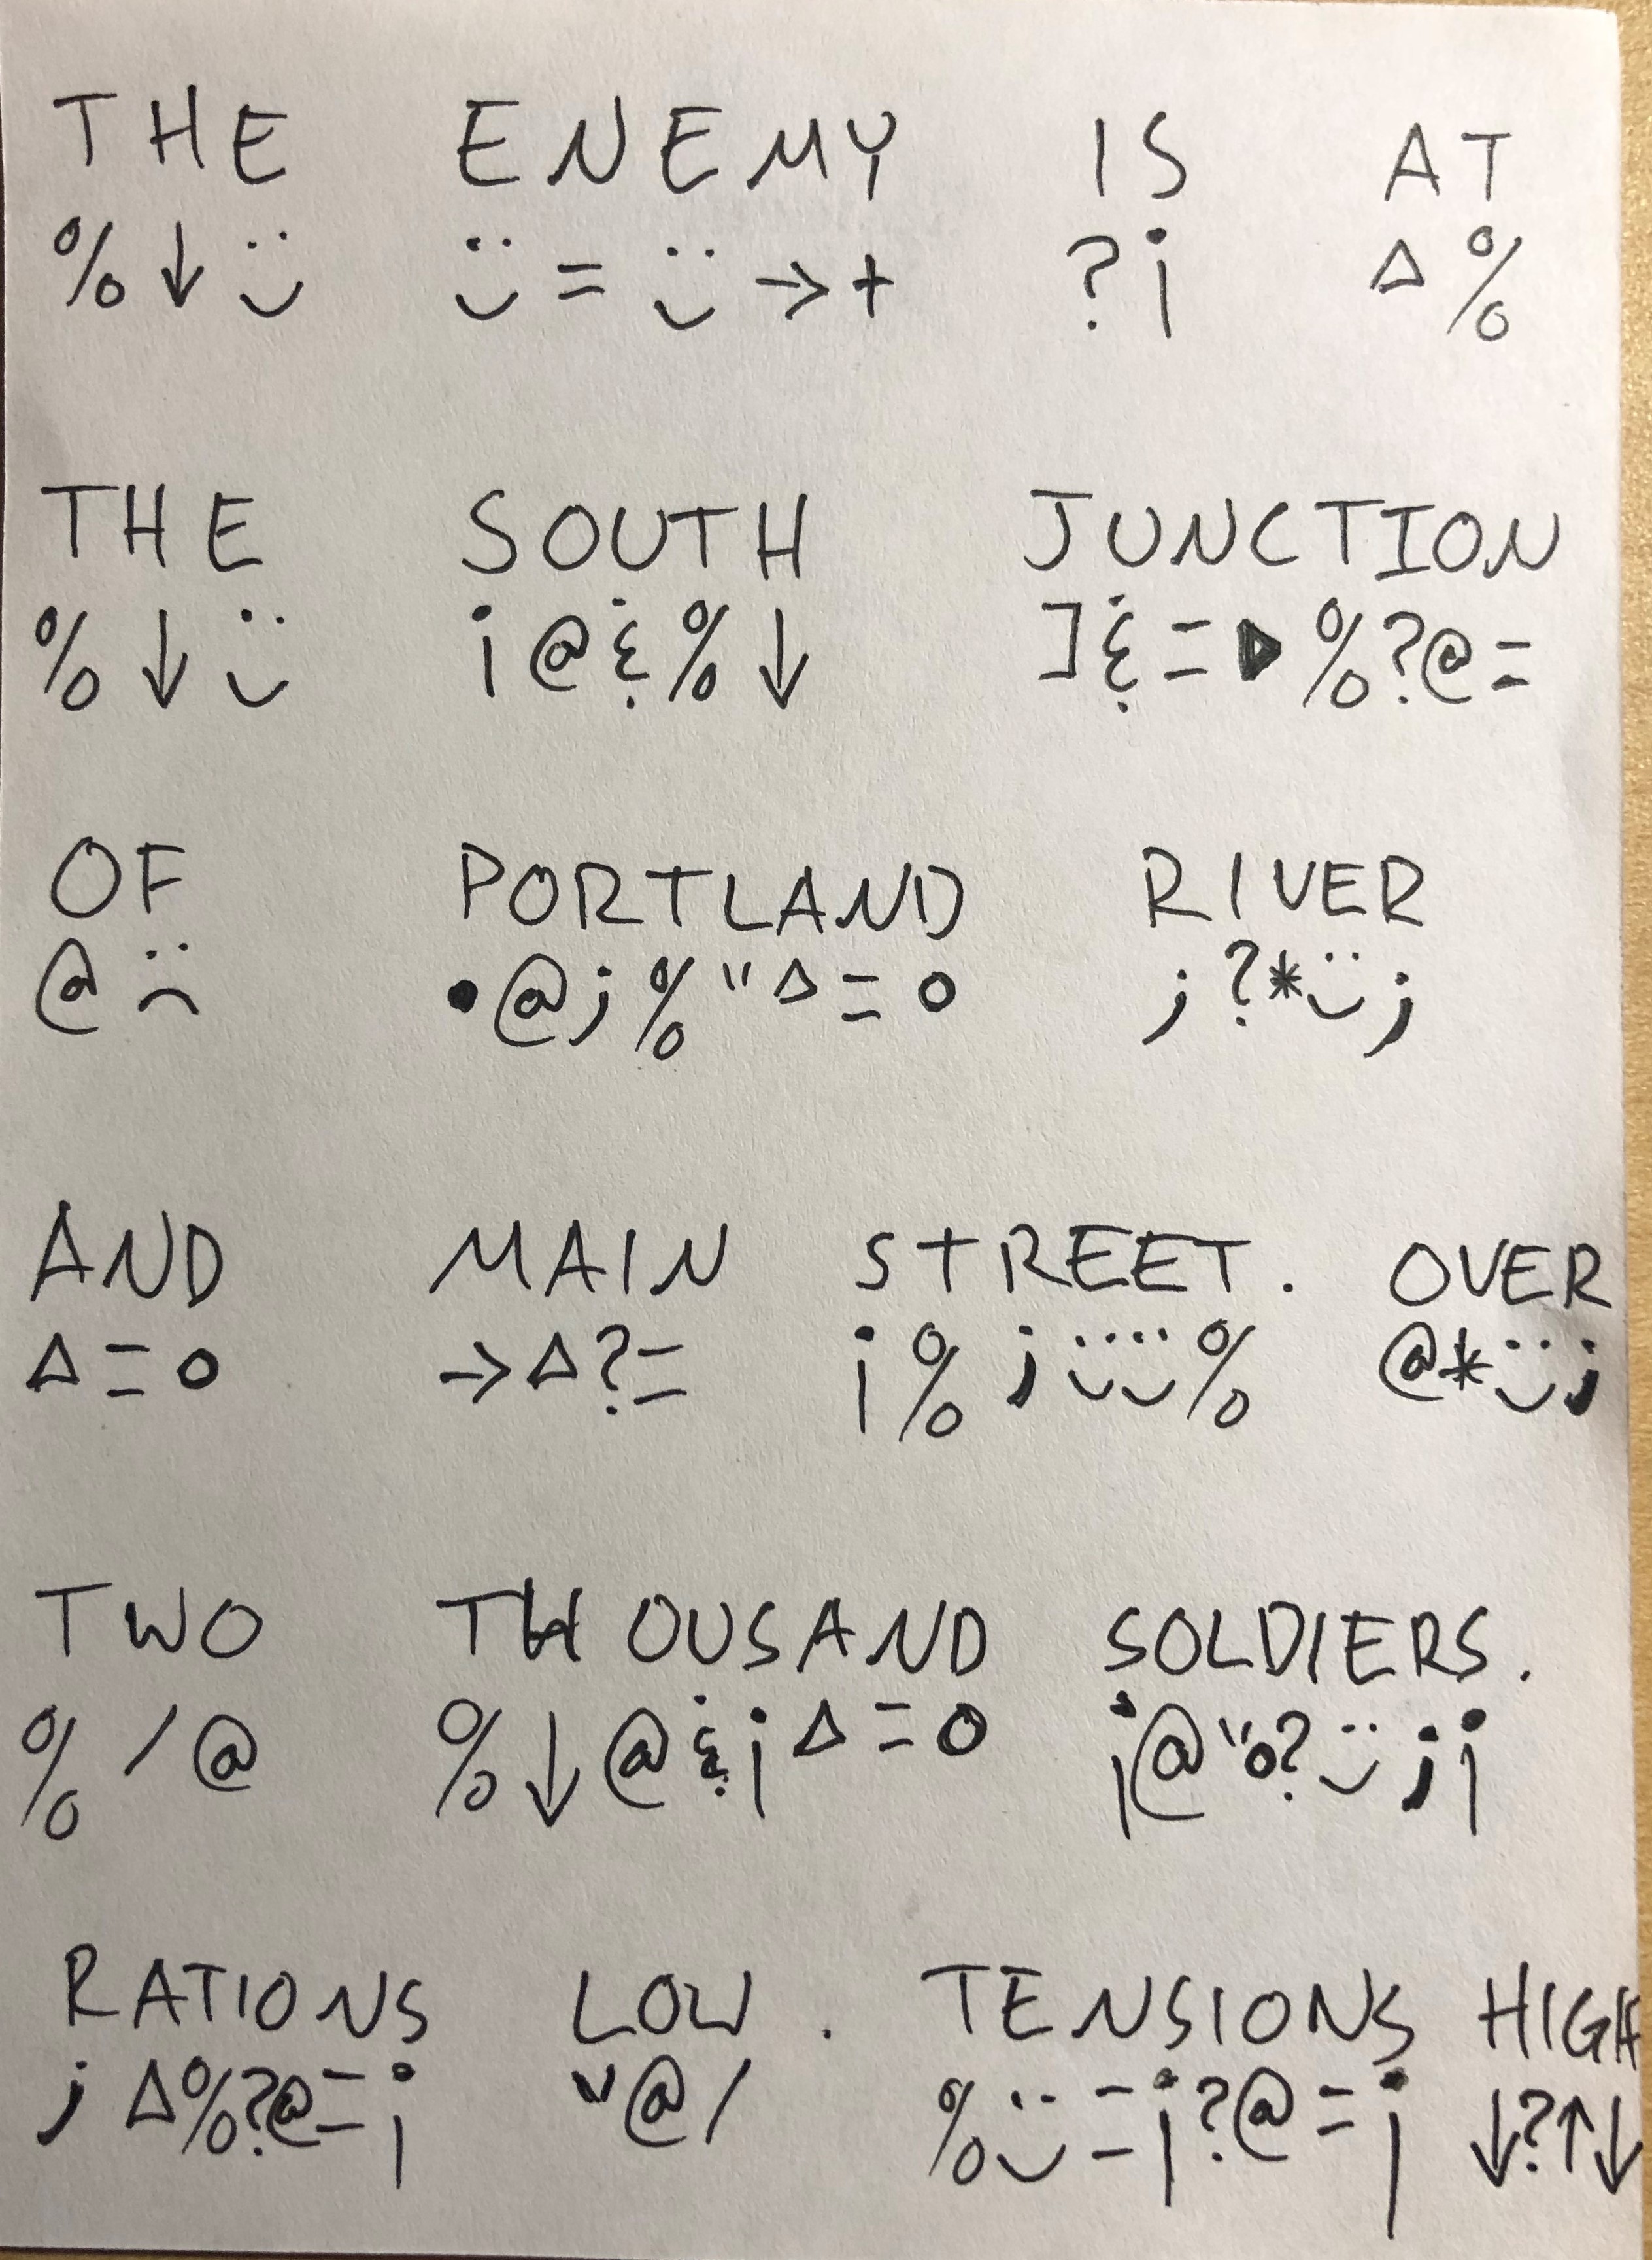 THE ENEMY IS AT
%↓☺ ☺=☺→+ ?¡ △%
THE SOUTH JUNCTION
%↓☺ ¡@&%↓ ]&=▶%?@=
OF PORTLAND RIVER
@☹ •@;%"△=o ;?*☺;
AND MAIN STREET. OVER
△=o →△?= ¡%;☺☺% @*☺;
TWO THOUSAND SOLDIERS.
%/@ %↓@&¡△=o ¡@"o?☺;¡
RATIONS LOW. TENSIONS HIGH
;△%?@=¡ "@/ %☺=¡?@=¡ ↓?↑↓